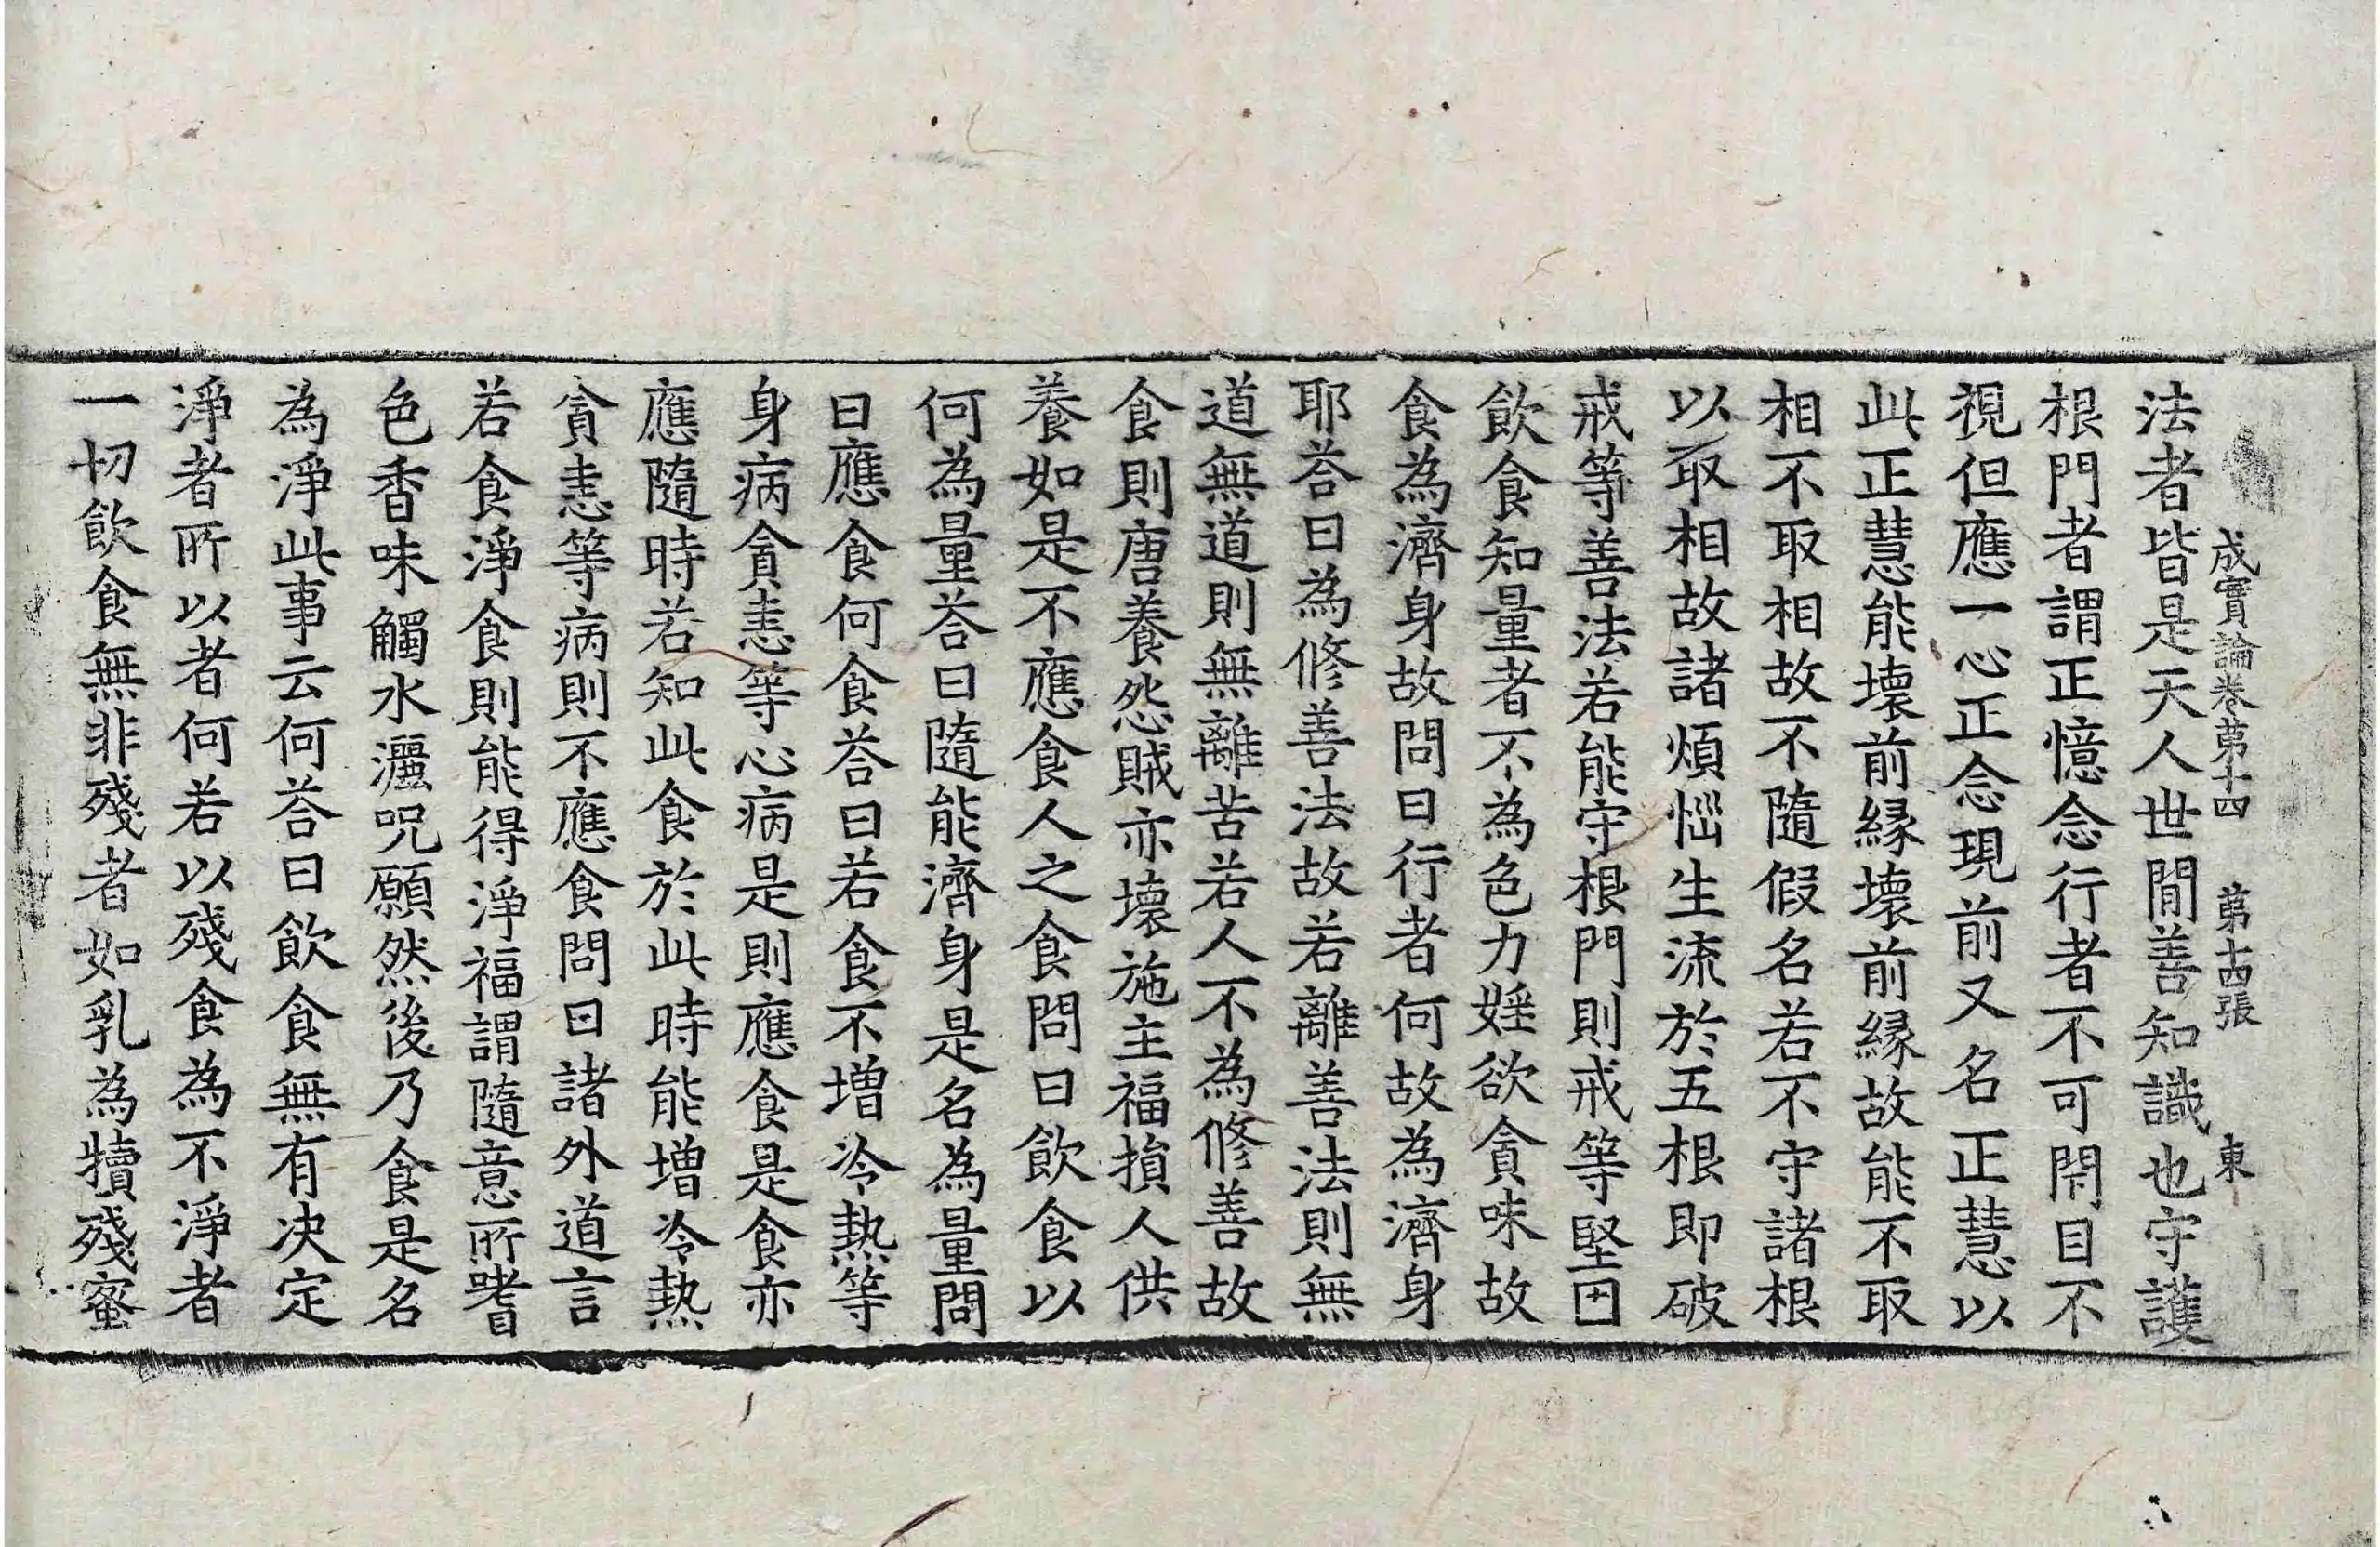 成實論卷苐十四 苐十四張 東
法者皆是天人世間善知識也守護
根門者謂正憶念行者不可閇目不
視但應一心正念現前又名正慧以
此正慧能壞前縁壞前縁故能不取
相不取相故不隨假名若不守諸根
以取相故諸煩惱生流於五根即破
戒等善法若能守根門則戒等堅固
飲食知量者不為色力婬欲貪味故
食為濟身故問曰行者何故為濟身
耶荅曰為修善法故若離善法則無
道無道則無離苦若人不為修善故
食則唐養怨賊亦壞施主福損人供
養如是不應食人之食問曰飲食以
何為量荅曰隨能濟身是名為量問
曰應食何食荅曰若食不增冷熱等
身病貪恚等心病是則應食是食亦
應隨時若知此食於此時能增冷熱
貪恚等病則不應食問曰諸外道言
若食淨食則能得淨福謂隨意所嗜
色香味觸水灑呪願然後乃食是名
為淨此事云何荅曰飲食無有决定
淨者所以者何若以殘食為不淨者
一切飲食無非殘者如乳為犢殘蜜